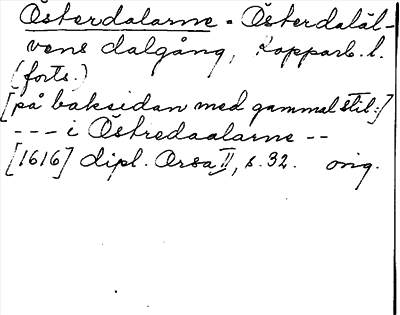 Österdalarne = Österdaläl-
vens dalgång, Kopparb. l.
(forts.)
[på baksidan med gammal stil:]
--- i Östredaalarne --
[1616] dipl. Orsa II, s. 32. orig.